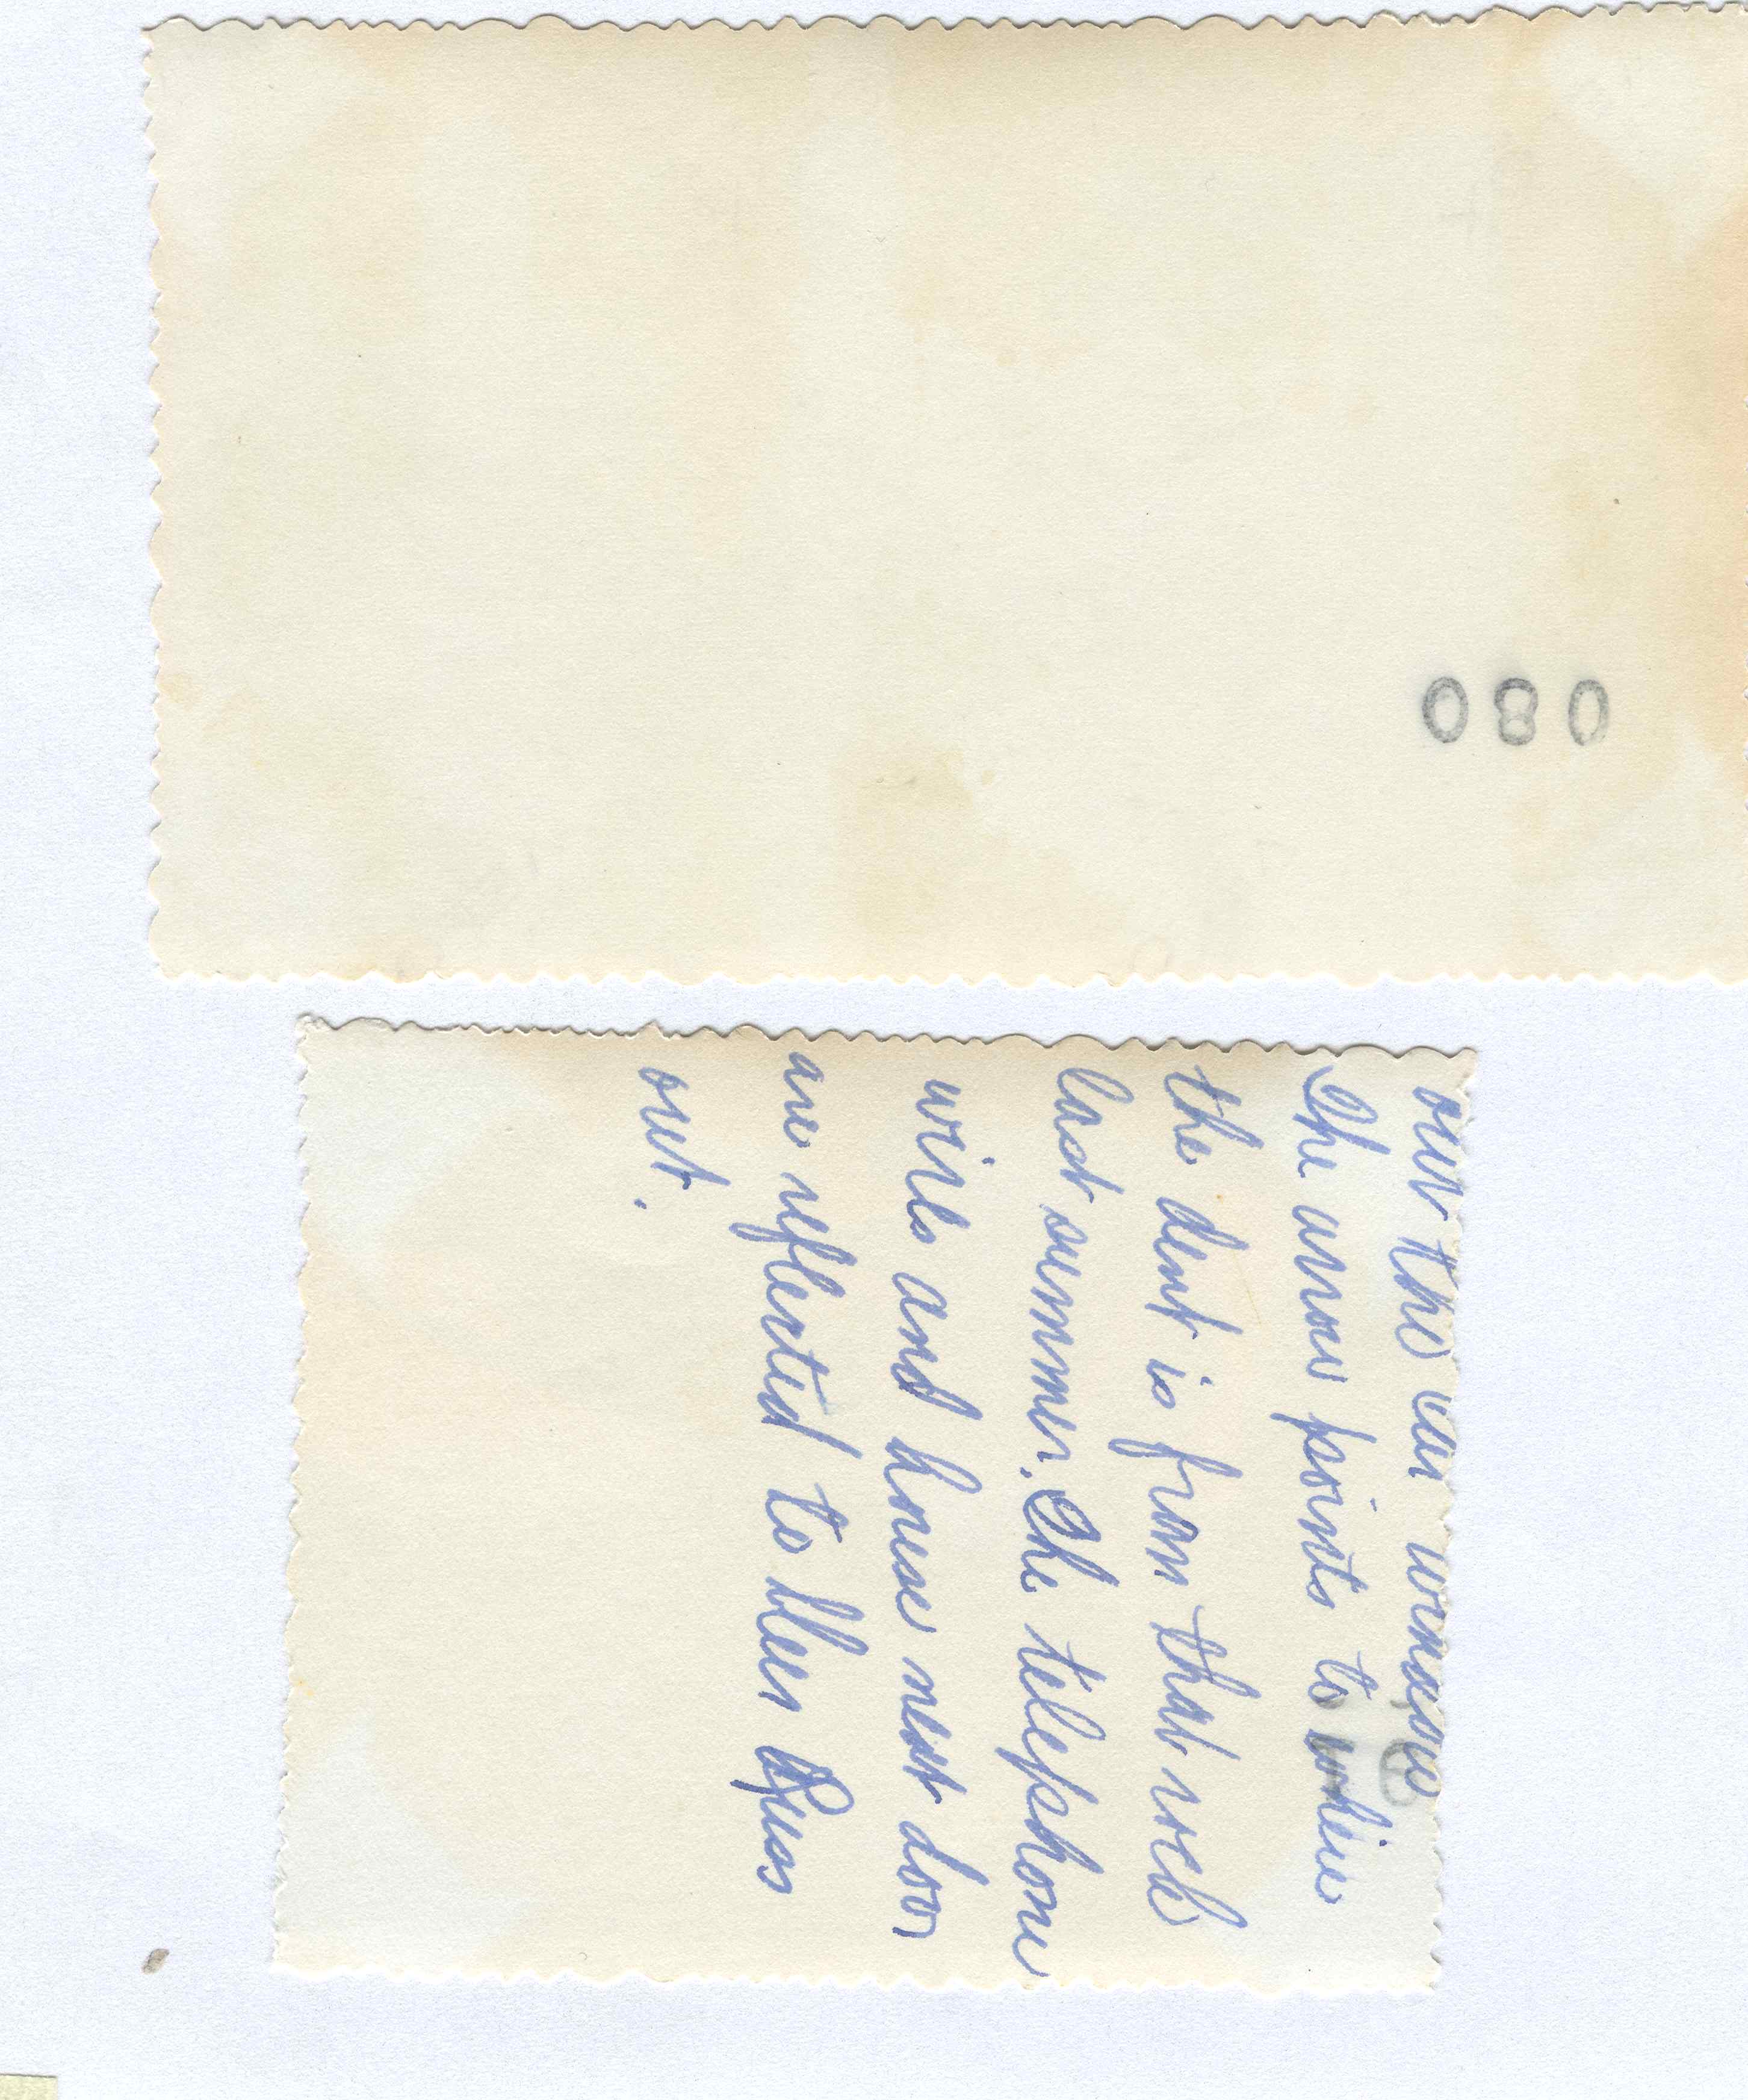 080
our the car
The arrow points to where
the dent is from that rock
last summer. The telephone
wires and house next door
are reflected to blur Russ
out.